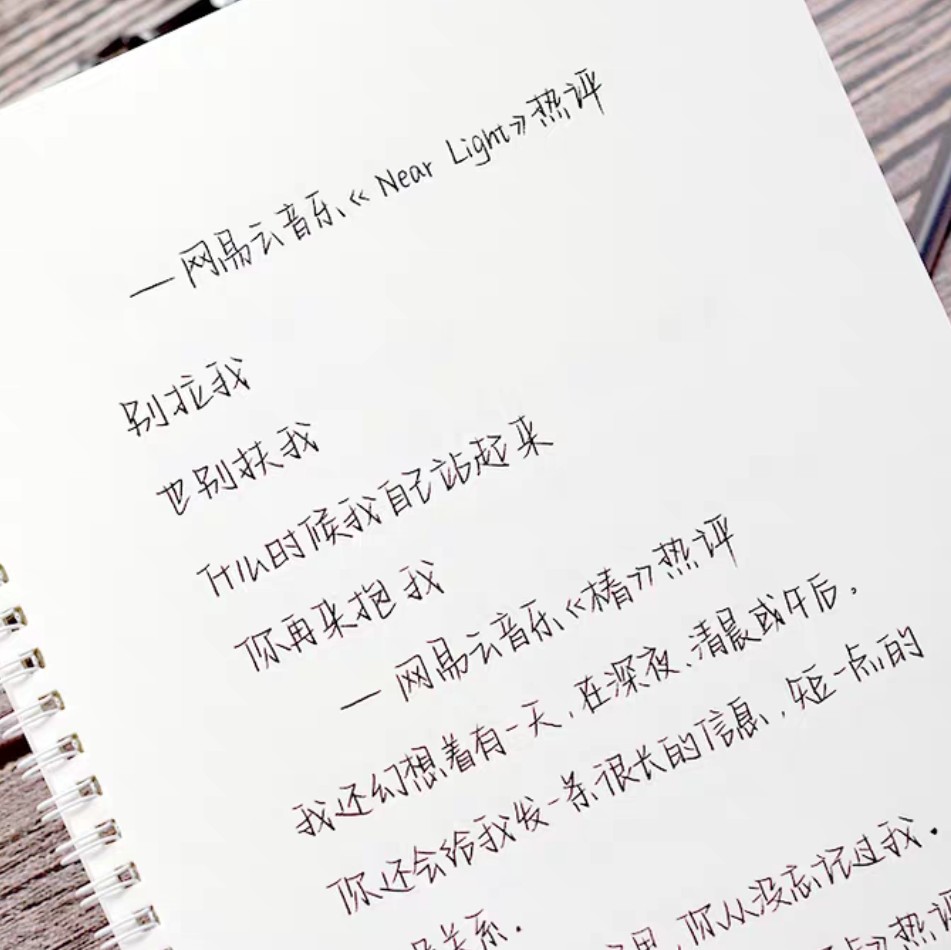 —网易云音乐《Near Light》热评
别拉我
也别扶我
什么时候我自己站起来
你再来抱我
—网易云音乐《椿》热评
我还幻想着有一天，在深夜、清晨或午后，
你还会给我发一条很长的信息，短一点的
关系.
你从没忘记过我.
热评